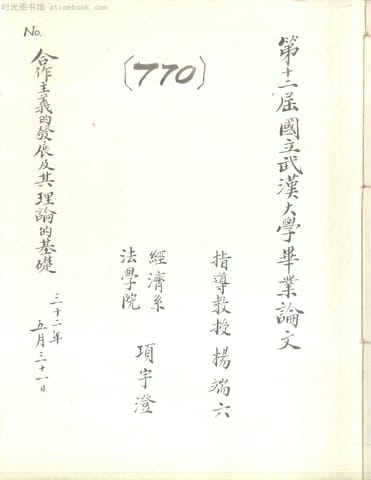 时光图书馆 atimebook.com
第十二屆國立武漢大學畢業論文
(770)
指導教授 楊端六
經濟系
法學院
項宇澄
No.
合作主義的發展及其理論的基礎
三十二年
五月三十一日